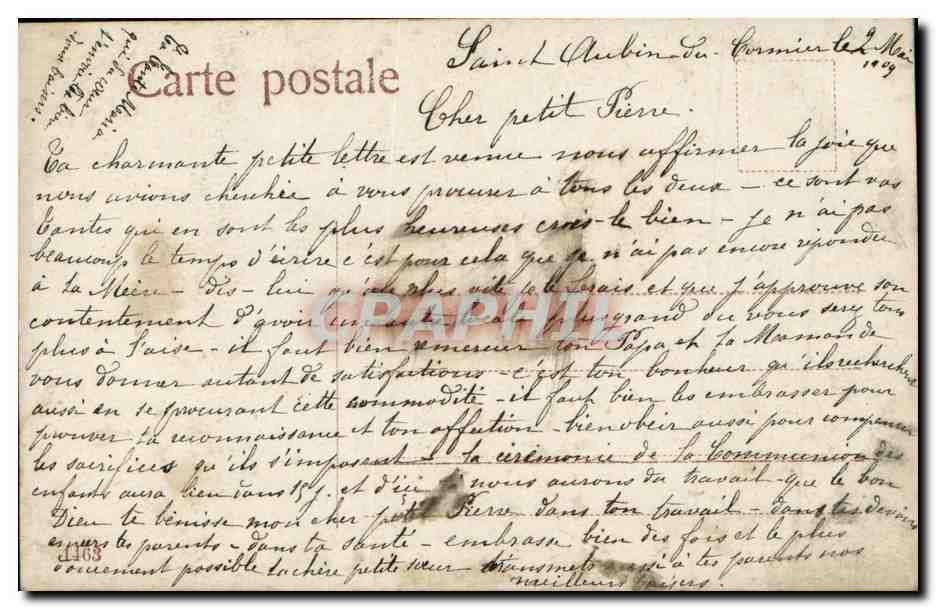 Saint Aubin du Cormier le 2 Mai
1909
Carte postale
Cher petit Pierre.
Ta charmante petite lettre est venue nous affirmer la joie que
nous avions cherchée à vous procurer à tous les deux - ce sont vos
Tantes qui en sont les plus heureuses crois-le bien - je n'ai pas
beaucoup le temps d'écrire c'est pour cela que je n'ai pas encore répondu
à ta Mère - dis-lui qu'au plus vite je le ferais et que j'approuve son
contentement d'avoir plus grand où vous serez tous
plus à l'aise - il faut bien remercier ton Papa et ta Maman de
vous donner autant de satisfactions - c'est ton bonheur qu'ils recherchent
aussi en se procurant cette commodité - il faut bien les embrasser pour
prouver ta reconnaissance et ton affection - bien obéir aussi pour compenser
les sacrifices qu'ils s'imposent - la cérémonie de la Communion des
enfants aura lieu dans 15 j. et d'ici là nous aurons du travail - que le bon
Dieu te bénisse mon cher petit Pierre dans ton travail - dans tes devoirs
envers tes parents - dans ta santé - embrasse bien des fois et le plus
doucement possible ta chère petite sœur transmets aussi à tes parents nos
meilleurs baisers.
ta Tante Maria
qui du cœur
1163
CPAPHIL